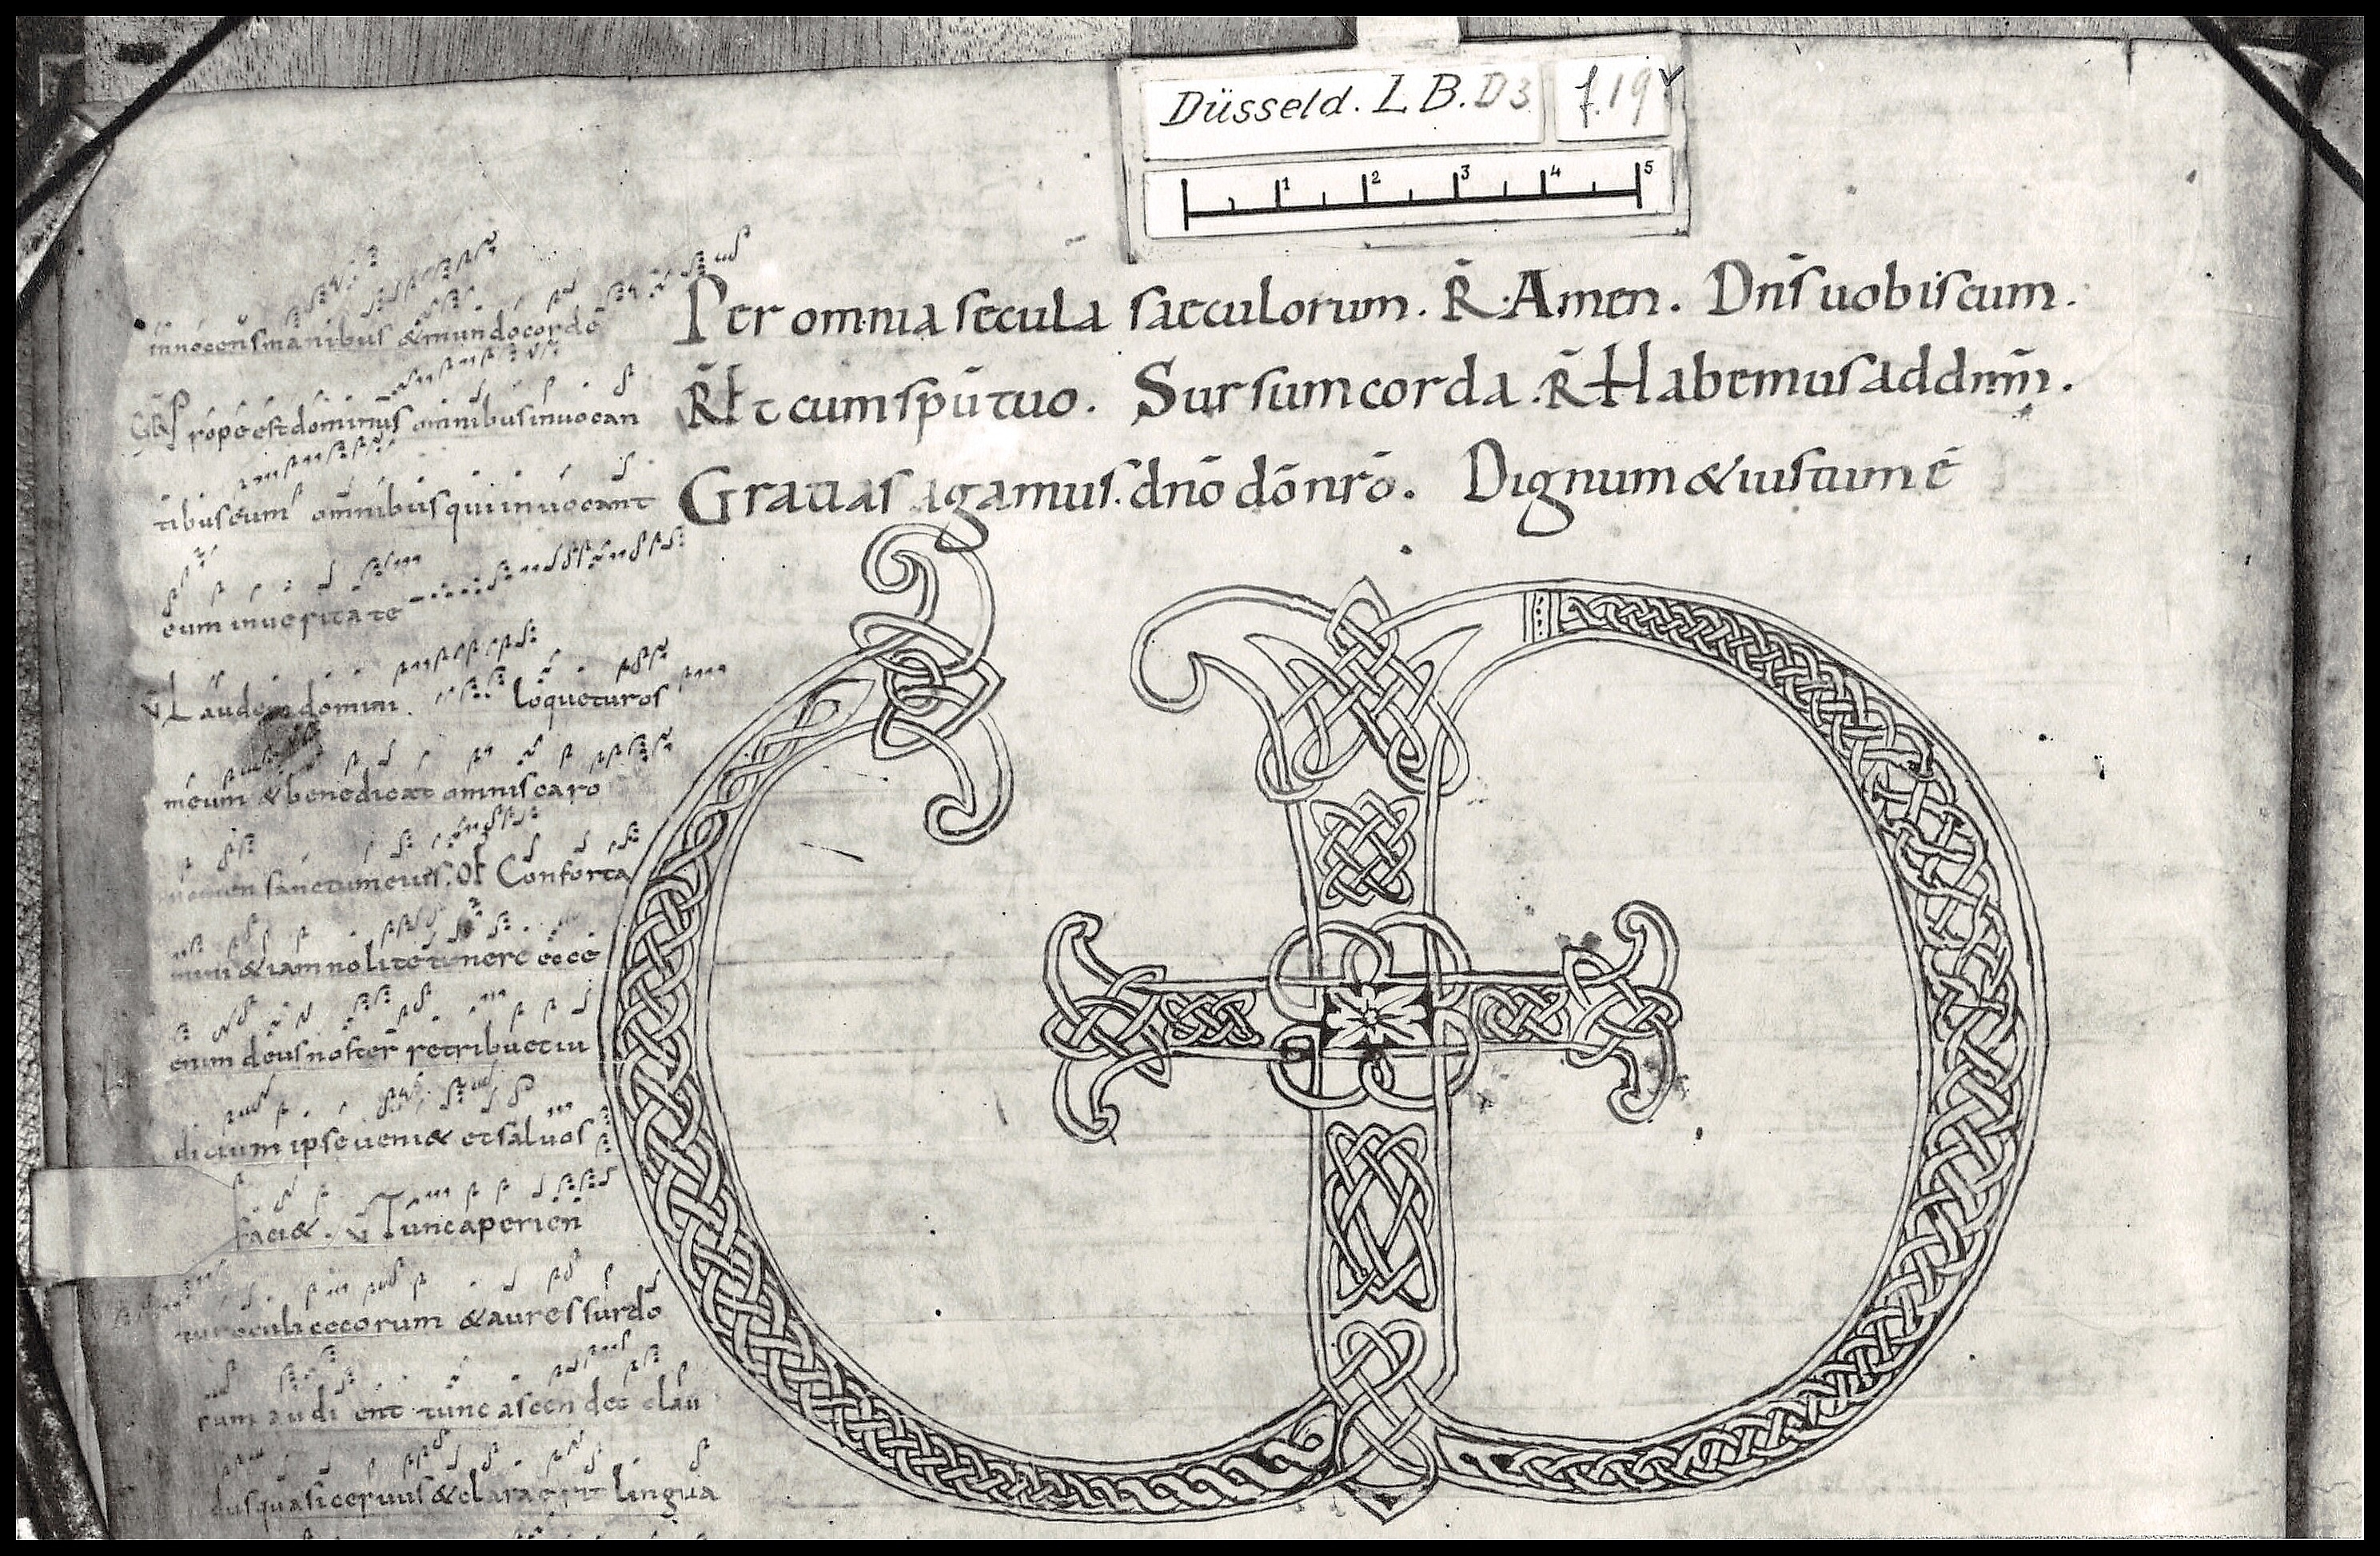 Düsseld. L B. D3 f. 19v
1 2 3 4 5
Per omnia secula saeculorum. R̄ Amen. Dn̄s uobiscum.
R̄ Et cum sp̄u tuo. Sursum corda. R̄ Habemus ad dnm̄.
Gratias agamus. dn̄o dō nr̄o. Dignum & iustum ē
innocens manibus & mundo corde
GR Prope est dominus omnibus inuocan
tibus eum omnibus qui inuocant
eum in ueritate
V Laudem domini loquetur os
meum & benedicat omnis caro
nomen sanctum eius. Of Conforta
mini & iam nolite timere ecce
enim deus noster retribuet iu
dicium ipse ueni& et saluos
faci&. V Tunc aperien
tur oculi cecorum & aures surdo
rum audient tunc ascendet clau
dus quasi ceruus & clara erit lingua